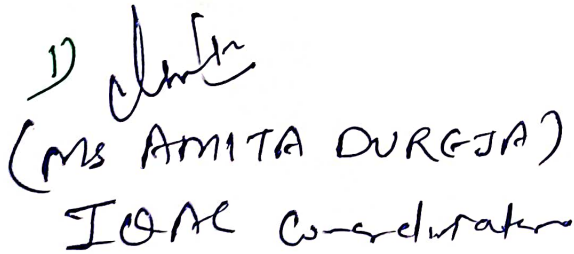 1) Amita
(Ms AMITA DUREJA)
IQAC Co-ordinator